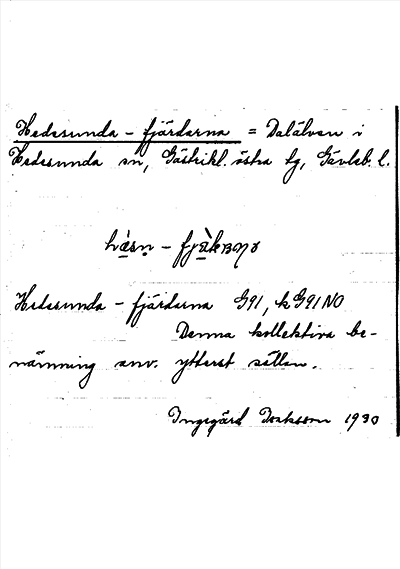 Hedesunda - fjärdarna = Dalälven i
Hedesunda sn, Gästrikl. östra tg, Gävleb. l.
Hedesunda - fjärdarna G91, k G91 NO
Denna kollektiva be-
nämning anv. ytterst sällan.
Ingegärd 1930